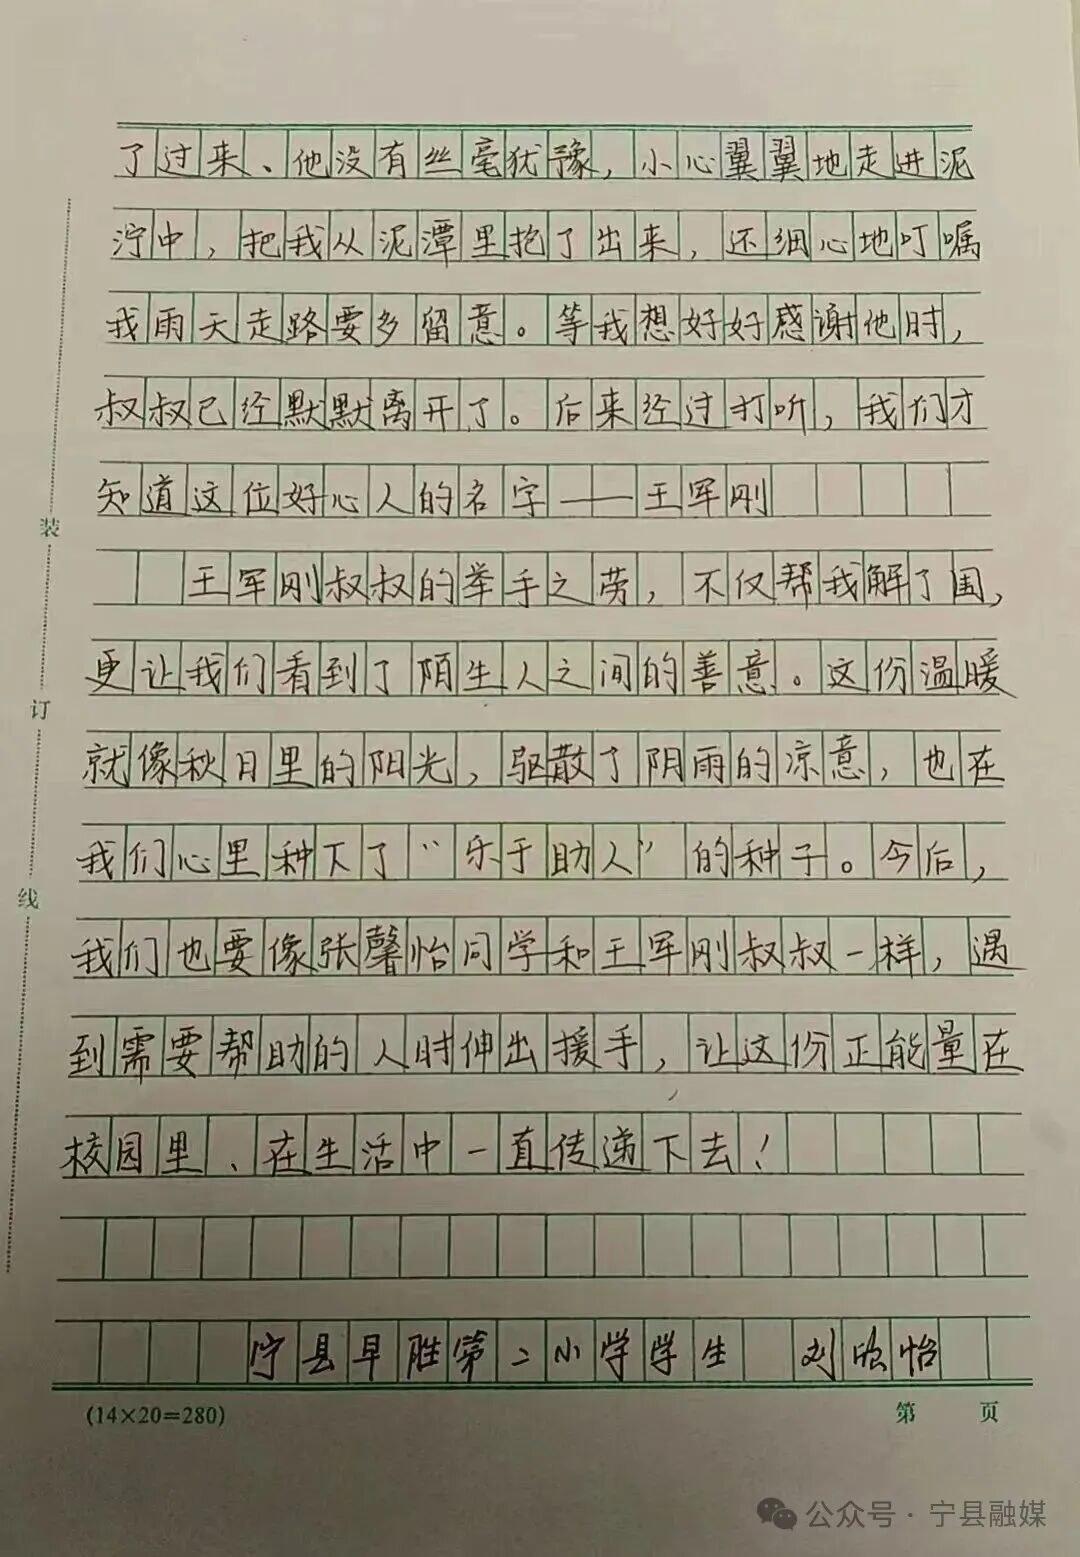 了过来、他没有丝毫犹豫，小心翼翼地走进泥
泞中，把我从泥潭里抱了出来，还细心地叮嘱
我雨天走路要多留意。等我想好好感谢他时，
叔叔已经默默离开了。后来经过打听，我们才
知道这位好心人的名字——王军刚
王军刚叔叔的举手之劳，不仅帮我解了围，
更让我们看到了陌生人之间的善意。这份温暖
就像秋日里的阳光，驱散了阴雨的凉意，也在
我们心里种下了“乐于助人”的种子。今后，
我们也要像张馨怡同学和王军刚叔叔一样，遇
到需要帮助的人时伸出援手，让这份正能量在
校园里、在生活中一直传递下去！
宁县早胜第二小学学生 刘欣怡
装
订
线
(14×20=280)
第 页
公众号·宁县融媒